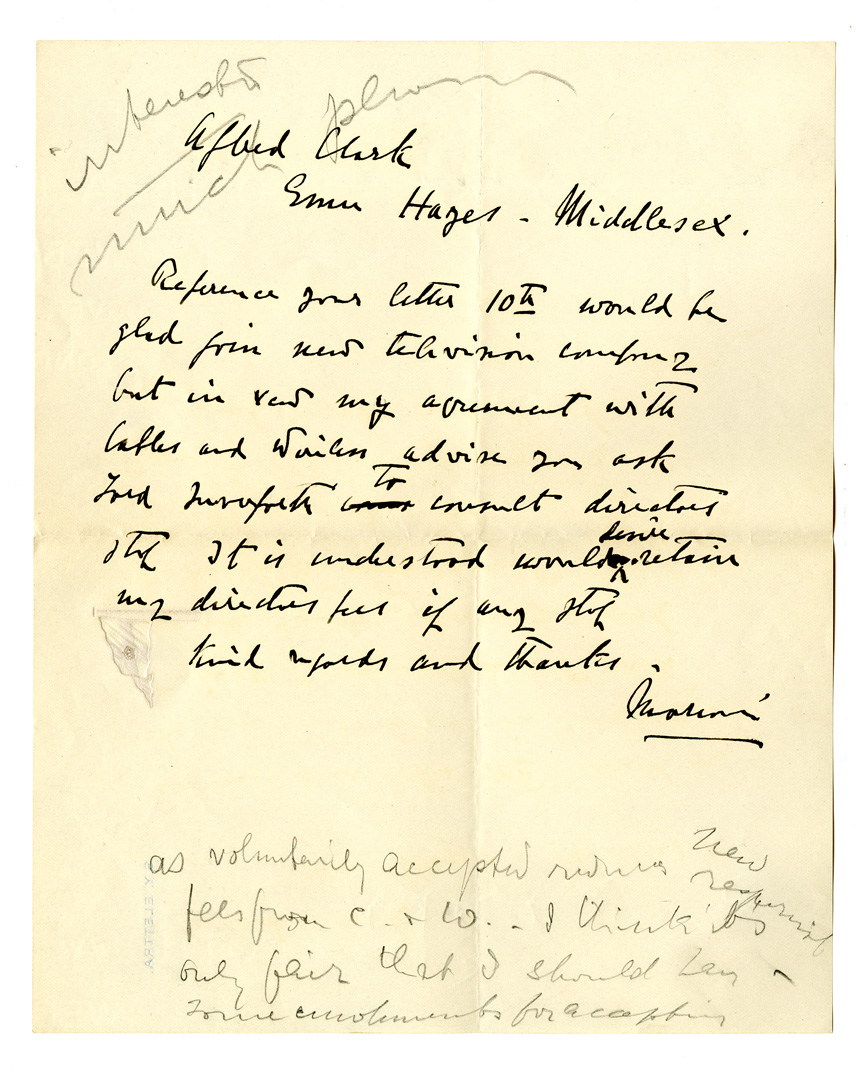 interested
much
Alfred Clark
Emi Hayes - Middlesex.
Reference your letter 10th would be
glad join new television company
but in view my agreement with
Cables and Wireless advise you ask
Lord Inverforth to consult directors
stop It is understood would desire retain
my directors fees if any stop
Kind regards and thanks.
Marconi
as voluntarily accepted reduced
fees from C. & W. - I think its
only fair that I should
some emoluments for accepting
new